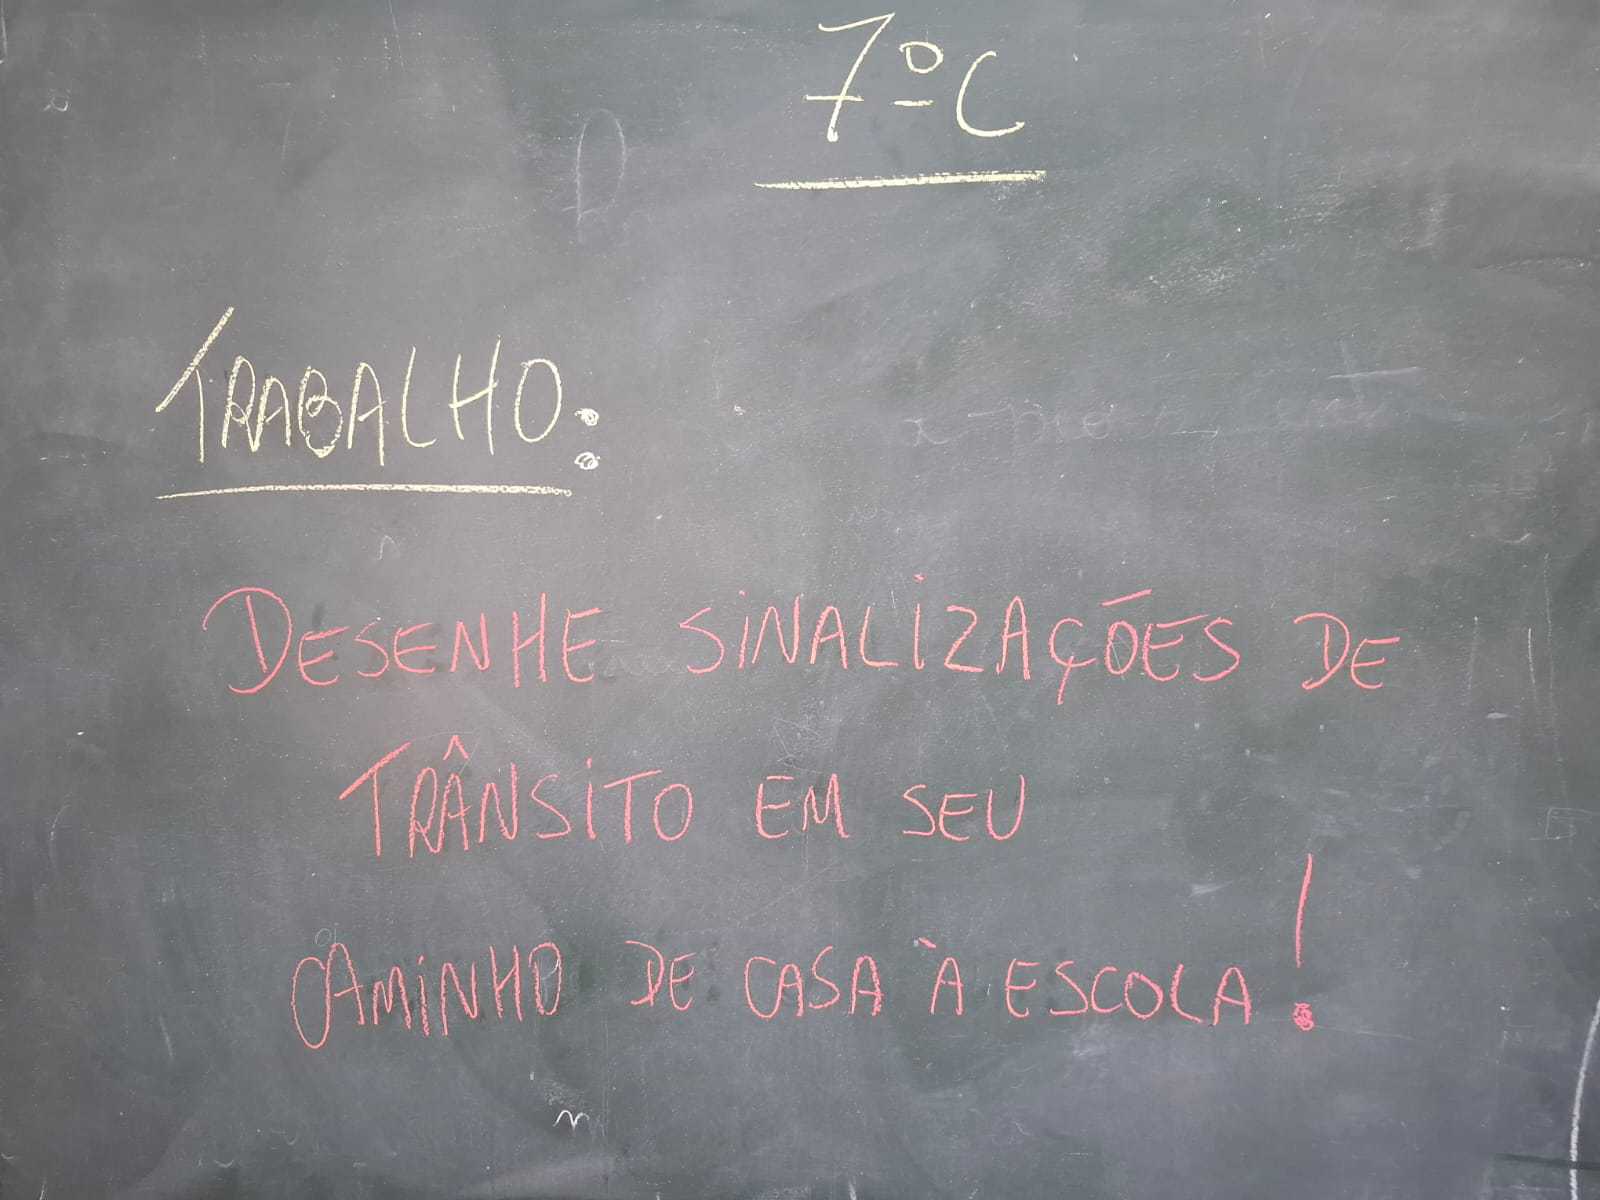 7º C
TRABALHO:
DESENHE SINALIZAÇÕES DE
TRÂNSITO EM SEU
CAMINHO DE CASA À ESCOLA!